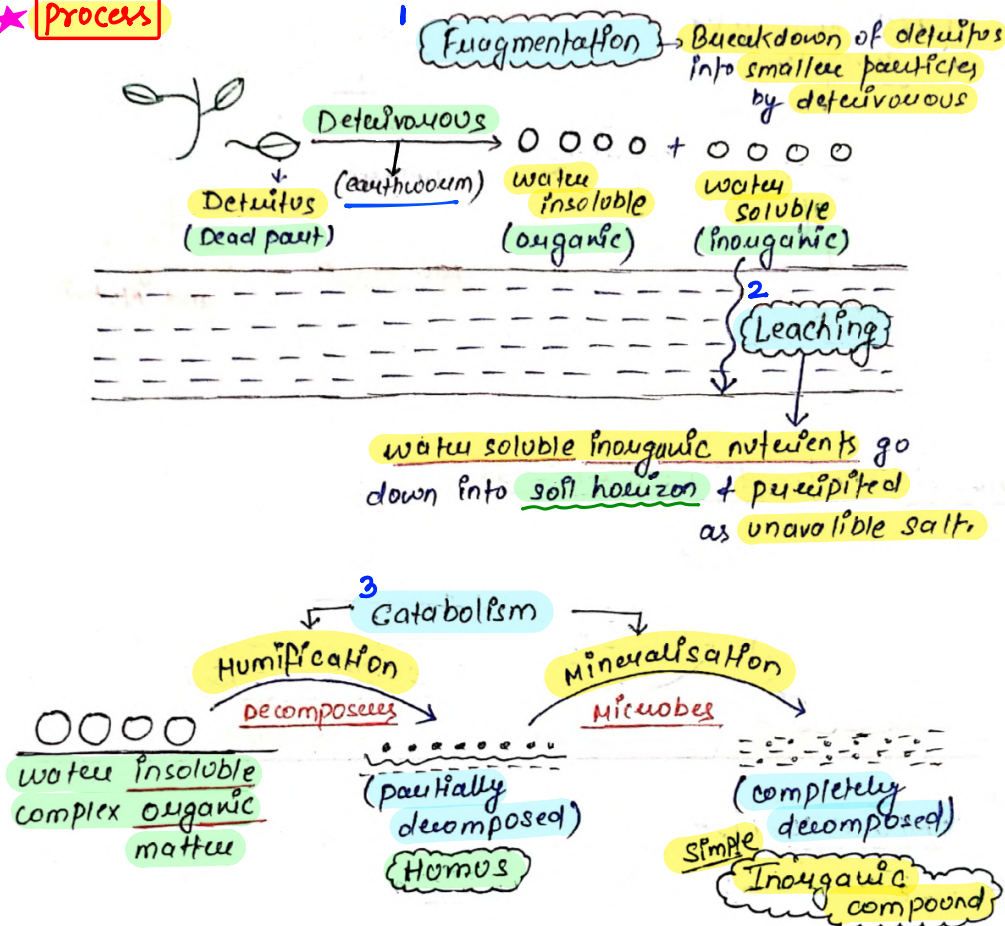 Process
1
Fragmentation → Breakdown of detritus
into smaller particles
by detrivorous
Detrivorous
(earthworm)
Detritus
(Dead part)
+
water
insoluble
(organic)
water
soluble
(inorganic)
2
Leaching
water soluble inorganic nutrients go
down into soil horizon & precipited
as unavalible salt.
3
Catabolism
Humification
Decomposers
Mineralisation
Microbes
water insoluble
complex organic
matter
(partially
decomposed)
Humus
(completely
decomposed)
Simple
Inorganic
compound